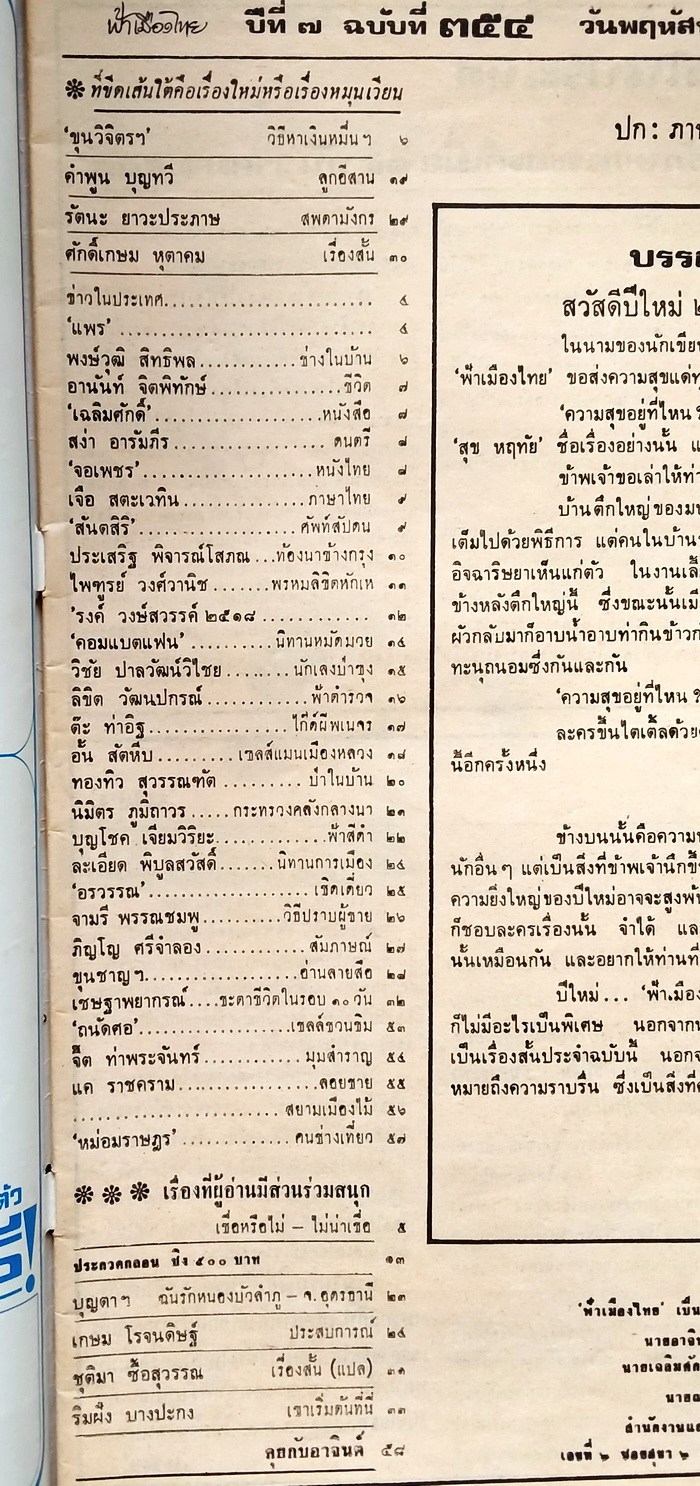 ฟ้าเมืองไทย ปีที่ ๗ ฉบับที่ ๓๕๔ วันพฤหัส
❋ ที่ขีดเส้นใต้คือเรื่องใหม่หรือเรื่องหมุนเวียน
'ขุนวิจิตรฯ' วิธีหาเงินหมื่นๆ ๖
คำพูน บุญทวี ลูกอีสาน ๑๙
รัตนะ ยาวะประภาษ สพตามังกร ๒๙
ศักดิ์เกษม หุตาคม เรื่องสั้น ๓๐
ข่าวในประเทศ........................ ๔
'แพร' ............................ ๔
พงษ์วุฒิ สิทธิพล............ช่างในบ้าน ๖
อานันท์ จิตพิทักษ์.................ชีวิต ๗
'เฉลิมศักดิ์'.....................หนังสือ ๘
สง่า อารัมภีร.................. ดนตรี ๘
'จอเพชร'.....................หนังไทย ๘
เจือ สตะเวทิน...............ภาษาไทย ๙
'สันตสิริ'................... ศัพท์สัปดน ๙
ประเสริฐ พิจารณ์โสภณ...ท้องนาข้างกรุง ๑๐
ไพฑูรย์ วงศ์วานิช........พรหมลิขิตหักเห ๑๑
'รงค์ วงษ์สวรรค์ ๒๕๑๘ ............ ๑๒
'คอมแบตแฟน' ..........นิทานหมัดมวย ๑๔
วิชัย ปาลวัฒน์วิไชย........นักเลงป่าซุง ๑๕
ลิขิต วัฒนปกรณ์...........ฟ้าตำรวจ ๑๖
ต๊ะ ท่าอิฐ.................ไก๊ด์ผีพเนจร ๑๗
อั้น สัตหีบ.........เซลส์แมนเมืองหลวง ๑๘
ทองทิว สุวรรณทัต .........ป่าในบ้าน ๒๐
นิมิตร ภูมิถาวร .....กระทรวงคลังกลางนา ๒๑
บุญโชค เจียมวิริยะ............ฟ้าสีดำ ๒๒
ละเอียด พิบูลสวัสดิ์.......นิทานการเมือง ๒๔
'อรวรรณ'.................... เชิดเดี่ยว ๒๕
จามรี พรรณชมพู..........วิธีปราบผู้ชาย ๒๖
ภิญโญ ศรีจำลอง............. สัมภาษณ์ ๒๗
ขุนชาญฯ..................อ่านลายสือ ๒๘
เชษฐาพยากรณ์....ชะตาชีวิตในรอบ ๑๐ วัน ๓๒
'ถนัดศอ'..................เชลล์ชวนชิม ๕๓
จี๊ด ท่าพระจันทร์...........มุมสำราญ ๕๔
แค ราชคราม................ลอยชาย ๕๕
......................... สยามเมืองไม้ ๕๖
'หม่อมราษฎร' .............คนช่างเที่ยว ๕๗
❋ ❋ ❋ เรื่องที่ผู้อ่านมีส่วนร่วมสนุก
เชื่อหรือไม่ – ไม่น่าเชื่อ ๕
ประกวดกลอน ชิง ๕๐๐ บาท ๑๓
บุญตาฯ ฉันรักหนองบัวลำภู – จ.อุดรธานี ๒๓
เกษม โรจนดิษฐ์ ประสบการณ์ ๒๔
ชุติมา ซื้อสุวรรณ เรื่องสั้น (แปล) ๓๑
ริมฝั่ง บางปะกง เขาเริ่มต้นที่นี่ ๓๓
คุยกับอาจินต์ ๕๘
ปก : ภา
บรรณ
สวัสดีปีใหม่ ๒
ในนามของนักเขีย
'ฟ้าเมืองไทย' ขอส่งความสุขแด่ทุ
'ความสุขอยู่ที่ไหน ?
'สุข หฤทัย' ชื่อเรื่องอย่างนั้น แ
ข้าพเจ้าขอเล่าให้ท่า
บ้านตึกใหญ่ของม
เต็มไปด้วยพิธีการ แต่คนในบ้าน
อิจฉาริษยาเห็นแก่ตัว ในงานเลี้
ข้างหลังตึกใหญ่นี้ ซึ่งขณะนั้นเมี
ผัวกลับมาก็อาบน้ำอาบท่ากินข้าว
ทะนุถนอมซึ่งกันและกัน
'ความสุขอยู่ที่ไหน ?
ละครขึ้นไตเติ้ลด้วย
นี้อีกครั้งหนึ่ง
ข้างบนนั้นคือความ
นักอื่นๆ แต่เป็นสิ่งที่ข้าพเจ้านึกขึ้
ความยิ่งใหญ่ของปีใหม่อาจจะสูงพ้
ก็ชอบละครเรื่องนั้น จำได้ แล
นั้นเหมือนกัน และอยากให้ท่านที่
ปีใหม่... 'ฟ้าเมือง
ก็ไม่มีอะไรเป็นพิเศษ นอกจาก
เป็นเรื่องสั้นประจำฉบับนี้ นอกจ
หมายถึงความราบรื่น ซึ่งเป็นสิ่งที่
'ฟ้าเมืองไทย' เป็น
นายอาจิน
นายเฉลิมศัก
นาย
สำนักงานแ
เลขที่ ๖ ซอยสุขา ๒